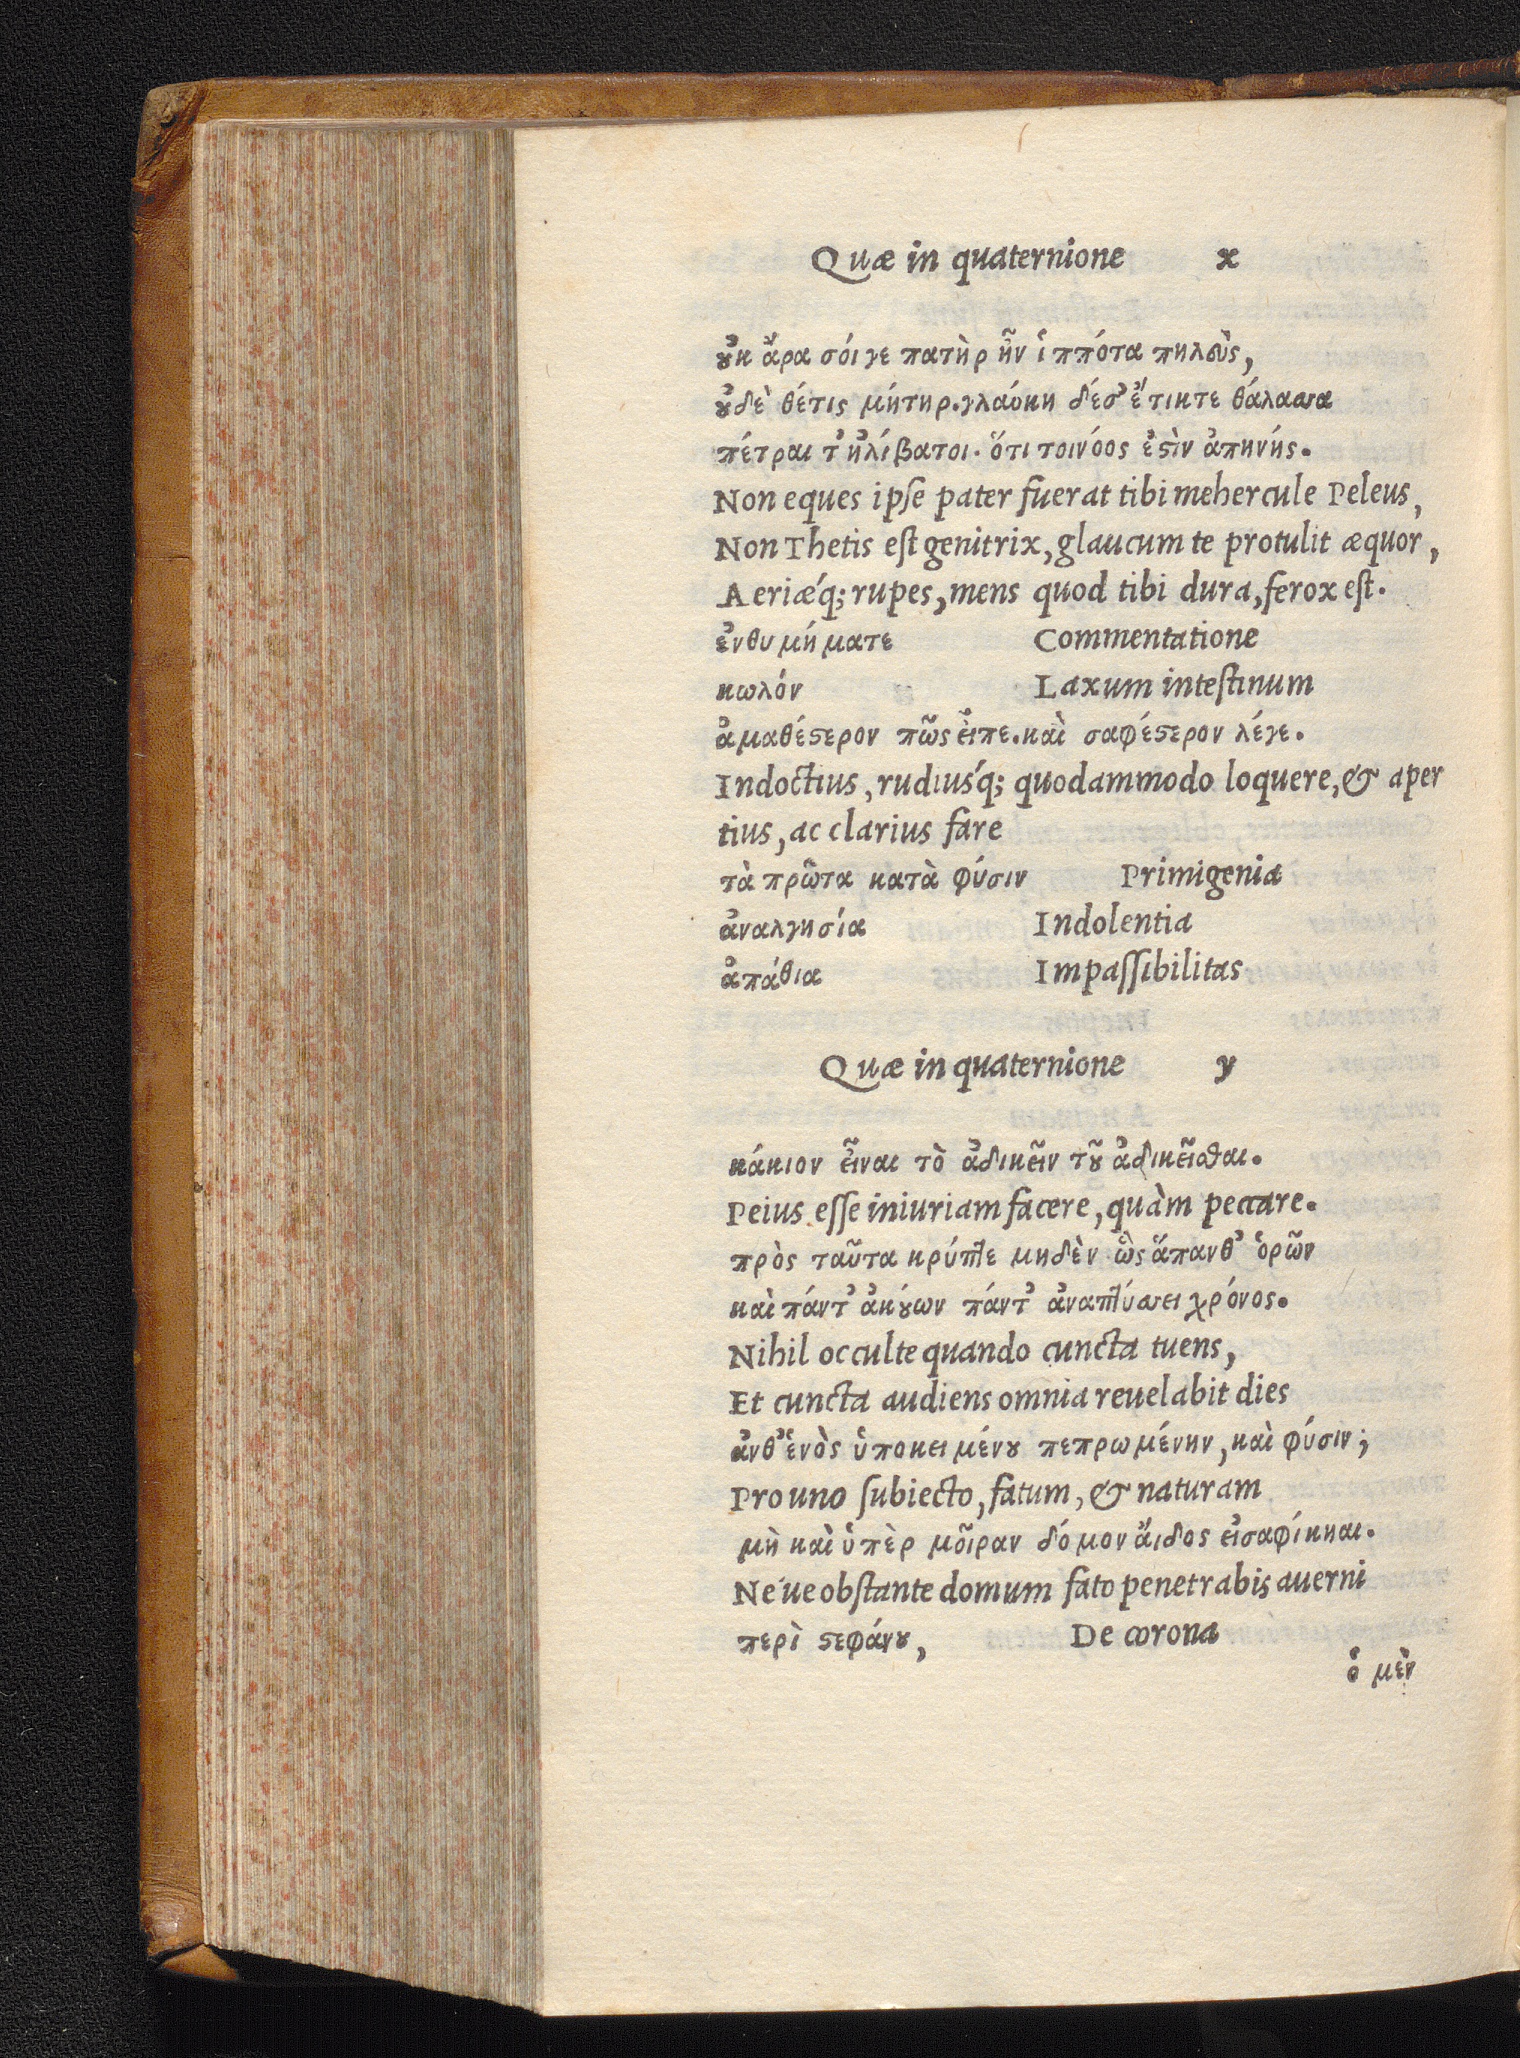 Quæ in quaternione x
οὐκ ἄρα σόι γε πατὴρ ἦν ἱππότα πηλεὺς,
οὐδὲ θέτις μήτηρ. γλαύκη δέσ' ἔτικτε θάλασσα
πέτραι τ' ἠλίβατοι. ὅτι τοινόος ἐστὶν ἀπηνής.
Non eques ipſe pater fuerat tibi mehercule Peleus,
Non Thetis eſt genitrix, glaucum te protulit æquor,
Aeriæ´q; rupes, mens quod tibi dura, ferox eſt.
ἐνθυμήματε Commentatione
κωλόν Laxum inteſtinum
ἀμαθέστερον πῶς εἰπε. καὶ σαφέστερον λέγε.
Indoctius, rudius´q; quodammodo loquere, & aper
tius, ac clarius fare
τὰ πρῶτα κατὰ φύσιν Primigenia
ἀναλγησία Indolentia
ἀπάθια Impaſſibilitas
Quæ in quaternione y
κάκιον εἶναι τὸ ἀδικεῖν τοῦ ἀδικεῖσθαι.
Peius eſſe iniuriam facere, quàm peccare.
πρὸς ταῦτα κρύπτε μηδὲν ὡς ἅπανθ' ὁρῶν
καὶ πάντ' ἀκούων πάντ' ἀναπτύσσει χρόνος.
Nihil occulte quando cuncta tuens,
Et cuncta audiens omnia reuelabit dies
ἀνθ' ἑνὸς ὑποκειμένου πεπρωμένην, καὶ φύσιν;
Pro uno ſubiecto, fatum, & naturam
μὴ καὶ ὑπὲρ μοῖραν δόμον ἄιδος εἰσαφίκηαι.
Ne´ue obſtante domum fato penetrabis auerni
περὶ στεφάνου, De corona
ὁ μὲν